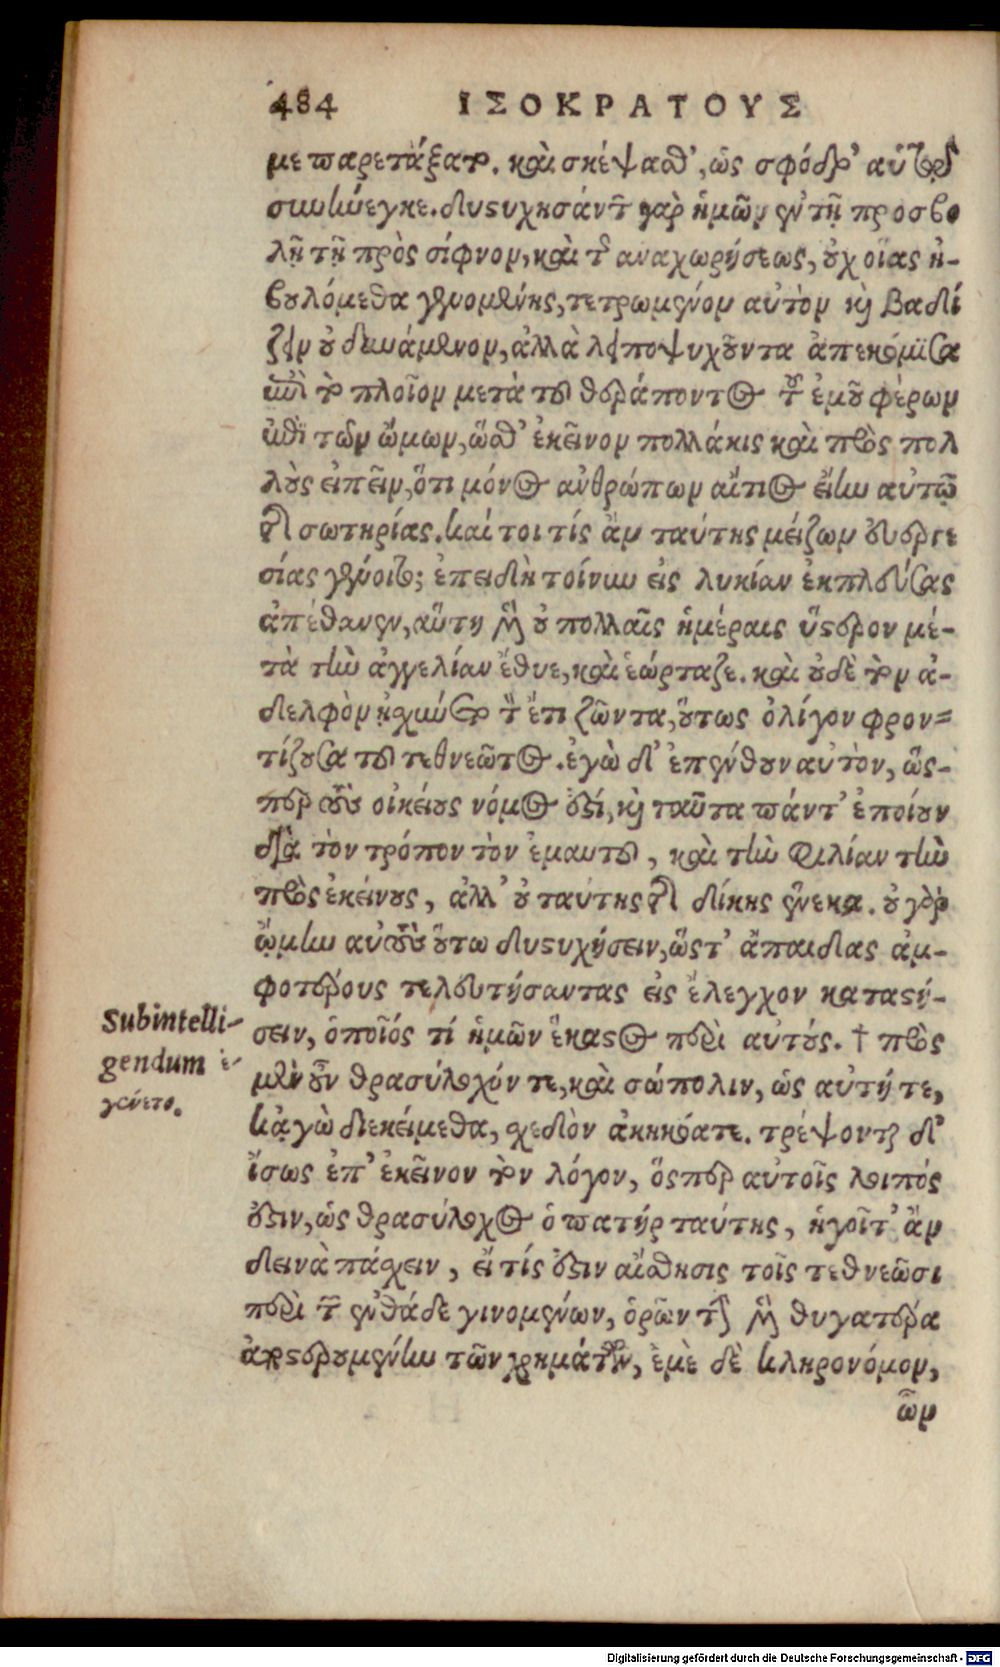 484 ΙΣΟΚΡΑΤΟΥΣ
με παρετάξατο. καὶ σκέψασθ’, ὡς σφόδρ’ αὐτοῖς
συνήνεγκε. δυστυχησάντων γὰρ ἡμῶν ἐν τῇ προσβο
λῇ τῇ πρὸς σίφνον, καὶ τῆς ἀναχωρήσεως, οὐχ οἵας ἠ-
βουλόμεθα γενομένης, τετρωμένον αὐτὸν καὶ βαδί
ζειν οὐ δυνάμενον, ἀλλὰ λειποψυχοῦντα ἀπεκόμισα
ἐπὶ τὸ πλοῖον μετὰ τοῦ θεράποντος τοῦ ἐμοῦ φέρων
ἐπὶ τῶν ὤμων, ὥσθ’ ἐκεῖνον πολλάκις καὶ πρὸς πολ
λοὺς εἰπεῖν, ὅτι μόνος ἀνθρώπων αἴτιος εἴην αὐτῷ
τῆς σωτηρίας. καί τοι τίς ἂν ταύτης μείζων εὐεργε
σίας γένοιτο; ἐπειδὴ τοίνυν εἰς λυκίαν ἐκπλεύσας
ἀπέθανεν, αὕτη μὲν οὐ πολλαῖς ἡμέραις ὕστερον με-
τὰ τὴν ἀγγελίαν ἔθυε, καὶ ἑώρταζε. καὶ οὐδὲ τὸν ἀ-
δελφὸν ᾐσχύνετο τὸν ἔτι ζῶντα, οὕτως ὀλίγον φρον=
τίζουσα τοῦ τεθνεῶτος. ἐγὼ δ’ ἐπένθουν αὐτὸν, ὥς-
περ τοὺς οἰκείους νόμος ἐστί, καὶ ταῦτα πάντ’ ἐποίουν
διὰ τὸν τρόπον τὸν ἐμαυτοῦ, καὶ τὴν φιλίαν τὴν
πρὸς ἐκείνους, ἀλλ’ οὐ ταύτης τῆς δίκης ἕνεκα. οὐ γὰρ
ᾤμην αὐτοὺς οὕτω δυστυχήσειν, ὥςτ’ ἄπαιδας ἀμ-
φοτέρους τελευτήσαντας εἰς ἔλεγχον καταστή-
σειν, ὁποῖός τί ἡμῶν ἕκαστος περὶ αὐτούς. † πρὸς
μὲν οὖν θρασύλοχόν τε, καὶ σώπολιν, ὡς αὐτή τε,
κᾀγὼ διεκείμεθα, σχεδὸν ἀκηκόατε. τρέψονται δ’
ἴσως ἐπ’ ἐκεῖνον τὸν λόγον, ὅςπερ αὐτοῖς λοιπός
ἐστιν, ὡς θρασύλοχος ὁ πατὴρ ταύτης, ἡγοῖτ’ ἂν
δεινὰ πάσχειν, εἴ τίς ἐστιν αἴσθησις τοῖς τεθνεῶσι
περὶ τῶν ἐνθάδε γινομένων, ὁρῶν τὴν μὲν θυγατέρα
ἀποστερουμένην τῶν χρημάτων, ἐμὲ δὲ κληρονόμον,
ὧν
Subintelli-
gendum ἐ-
γένετο.
Digitalisierung gefördert durch die Deutsche Forschungsgemeinschaft - DFG